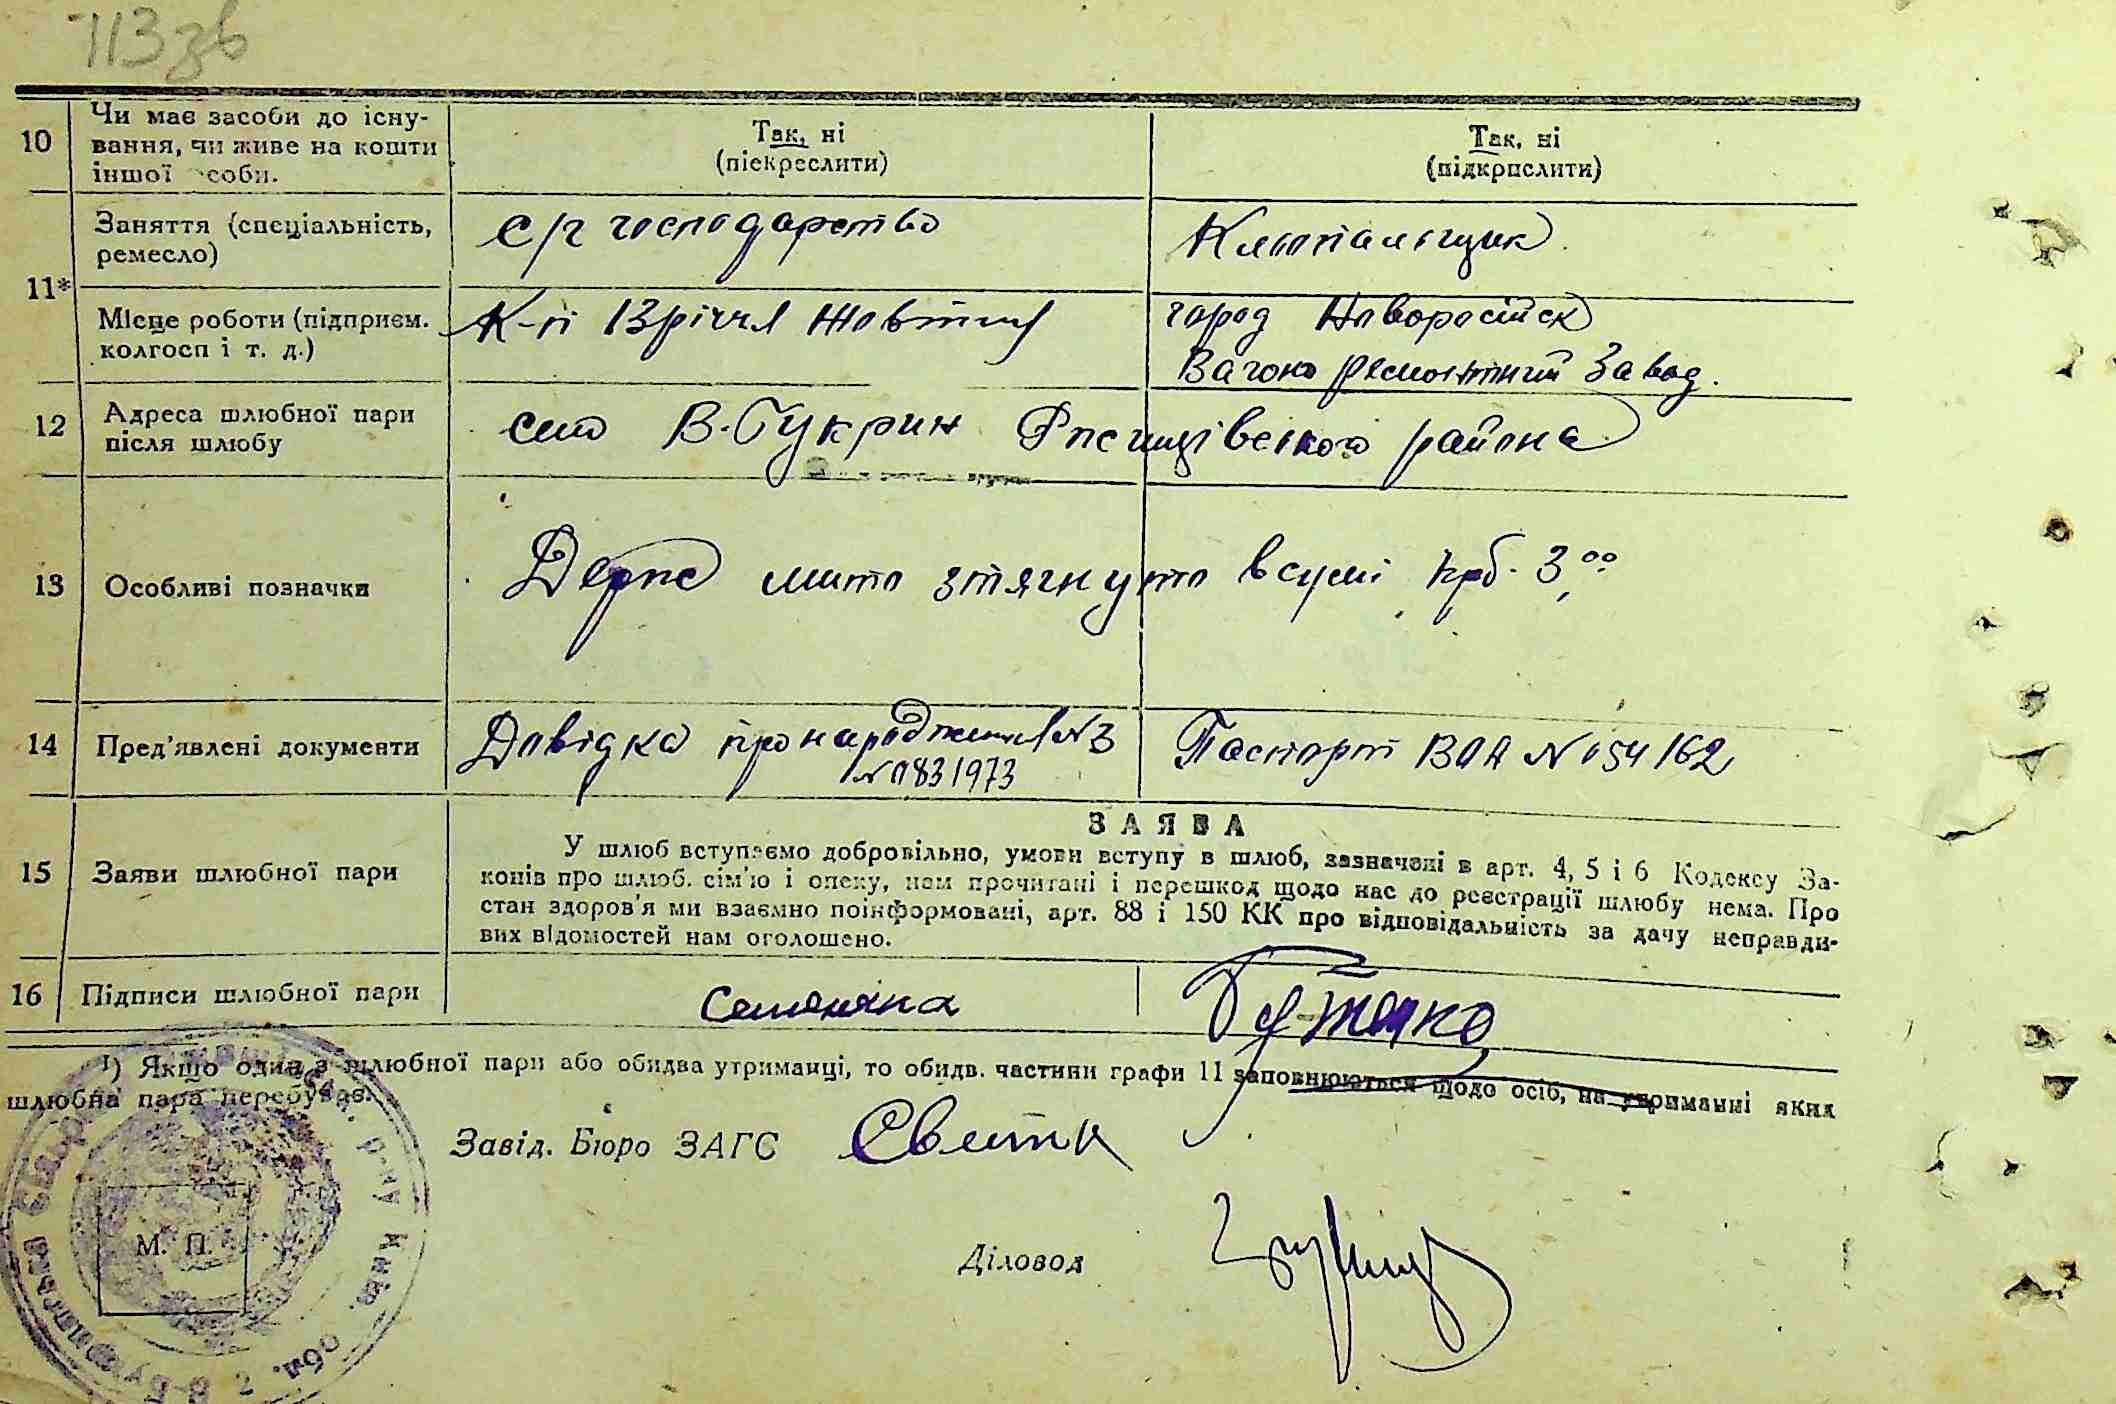 113зв
10 Чи має засоби до існу-
вання, чи живе на кошти
іншої особи.
Так, ні
(піекреслити)
Так, ні
(підкрпслити)
11*
Заняття (спеціальність,
ремесло)
с/г господарство
Клопальщик
Місце роботи (підприєм.
колгосп і т. д.)
К-п 13річчя Жовтня
город Новоросійск
Вагоно ремонтний Завод.
12 Адреса шлюбної пари
після шлюбу
село В-Букрин Ржищівського района
13 Особливі позначки
Держ мито зтягнуто в сумі крб. 3,00
14 Пред'явлені документи
Довідка про народження №3
№ 0831973
Паспорт ВОА № 054162
15 Заяви шлюбної пари
ЗАЯВА
У шлюб вступаємо добровільно, умови вступу в шлюб, зазначені в арт. 4, 5 і 6 Кодексу За-
конів про шлюб. сім'ю і опеку, нам прочитані і перешкод щодо нас до реєстрації шлюбу нема. Про
стан здоров'я ми взаємно поінформовані, арт. 88 і 150 КК про відповідальність за дачу неправди-
вих відомостей нам оголошено.
16 Підписи шлюбної пари
Семеняка
¹) Якщо один з шлюбної пари або обидва утриманці, то обидв. частини графи 11 заповнюються щодо осіб, на утриманні яких
шлюбна пара перебуває.
Завід. Бюро ЗАГС
Діловод
М. П.
р-ну Київ. обл.